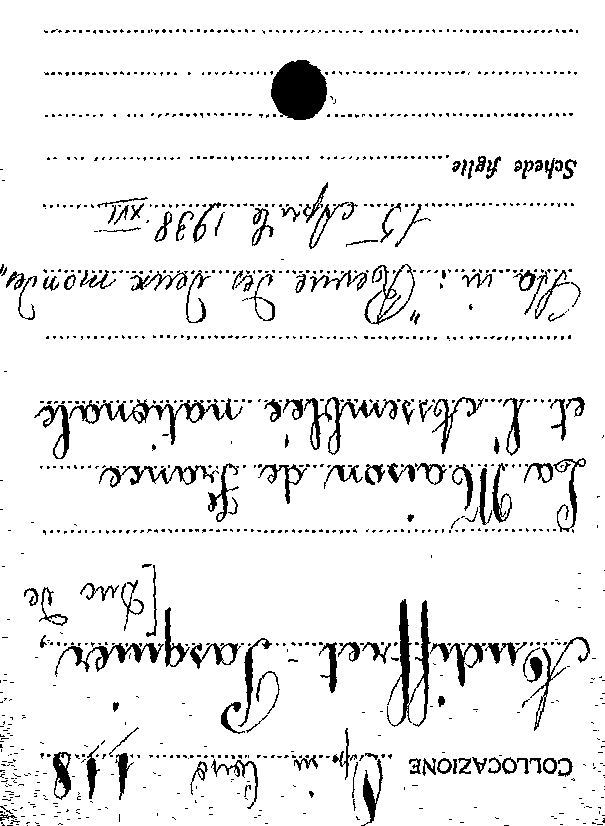 COLLOCAZIONE 118
Audiffret-Pasquier,
[Duc De
La Maison de France
et l'Assemblée nationale
Sta in: "Revue des deux mondes"
15 Aprile 1938. XVI
Schede figlie